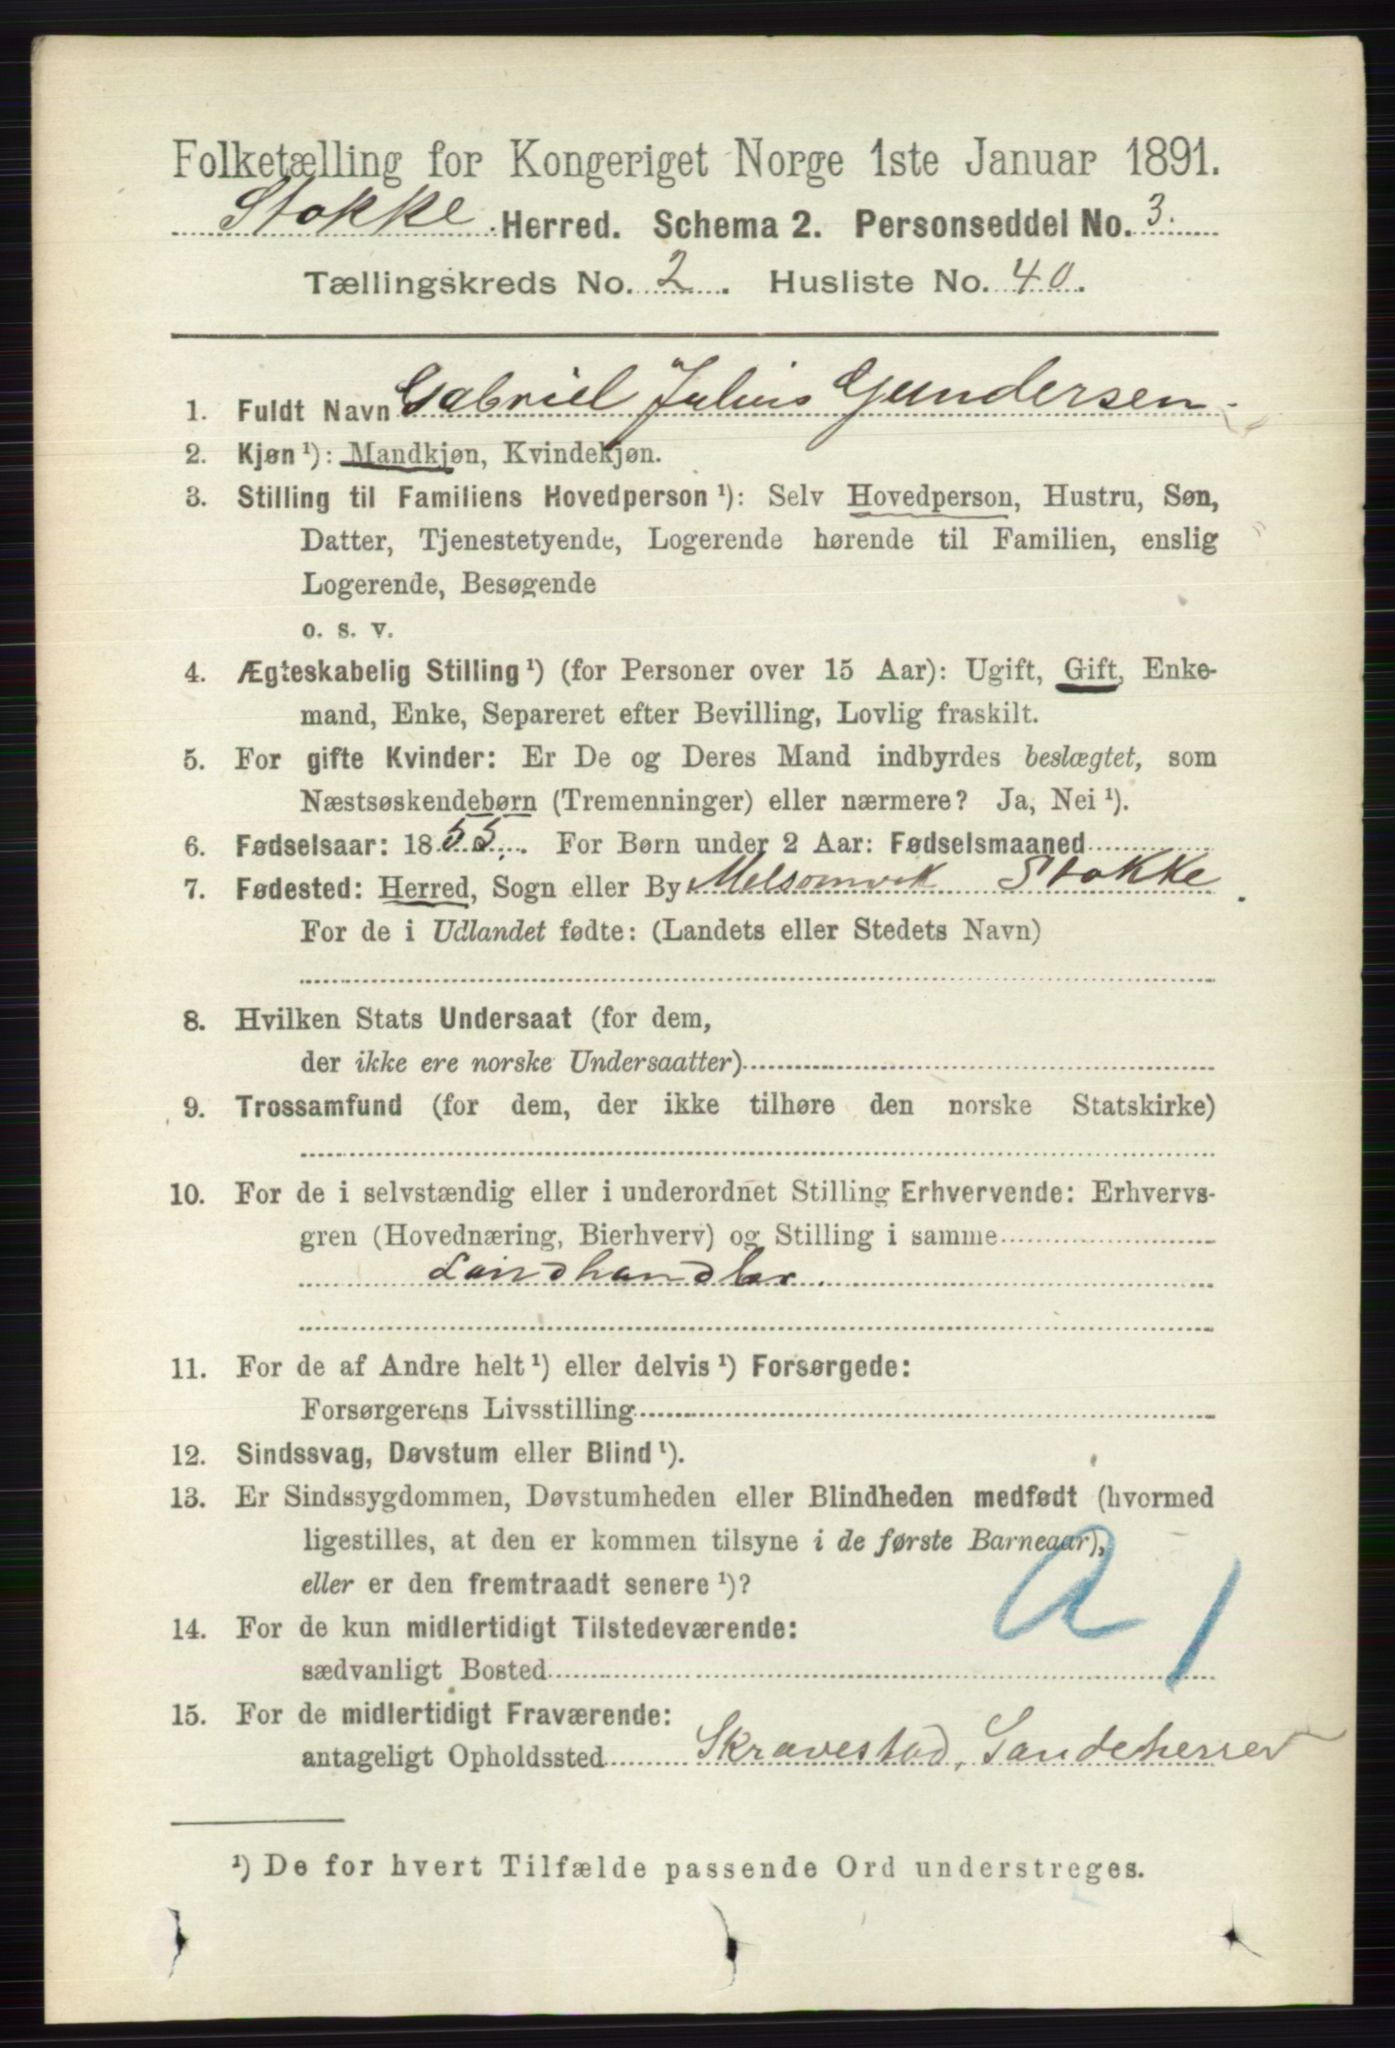 Folketælling for Kongeriget Norge 1ste Januar 1891.
Stokke Herred. Schema 2. Personseddel No. 3.
Tællingskreds No. 2. Husliste No. 40.
1. Fuldt Navn Gabriel Julius Gundersen
2. Kjøn ¹): Mandkjøn, Kvindekjøn.
3. Stilling til Familiens Hovedperson ¹): Selv Hovedperson, Hustru, Søn,
Datter, Tjenestetyende, Logerende hørende til Familien, enslig
Logerende, Besøgende
o. s. v.
4. Ægteskabelig Stilling ¹) (for Personer over 15 Aar): Ugift, Gift, Enke-
mand, Enke, Separeret efter Bevilling, Lovlig fraskilt.
5. For gifte Kvinder: Er De og Deres Mand indbyrdes beslægtet, som
Næstsøskendebørn (Tremenninger) eller nærmere? Ja, Nei ¹).
6. Fødselsaar: 1855. For Børn under 2 Aar: Fødselsmaaned
7. Fødested: Herred, Sogn eller By Melsomvik Stokke.
For de i Udlandet fødte: (Landets eller Stedets Navn)
8. Hvilken Stats Undersaat (for dem,
der ikke ere norske Undersaatter)
9. Trossamfund (for dem, der ikke tilhøre den norske Statskirke)
10. For de i selvstændig eller i underordnet Stilling Erhvervende: Erhvervs-
gren (Hovednæring, Bierhverv) og Stilling i samme
Landhandler.
11. For de af Andre helt ¹) eller delvis ¹) Forsørgede:
Forsørgerens Livsstilling
12. Sindssvag, Døvstum eller Blind ¹).
13. Er Sindssygdommen, Døvstumheden eller Blindheden medfødt (hvormed
ligestilles, at den er kommen tilsyne i de første Barneaar),
eller er den fremtraadt senere ¹)?
a 1
14. For de kun midlertidigt Tilstedeværende:
sædvanligt Bosted
15. For de midlertidigt Fraværende:
antageligt Opholdssted Skravestad, Sandeherred
¹) De for hvert Tilfælde passende Ord understreges.